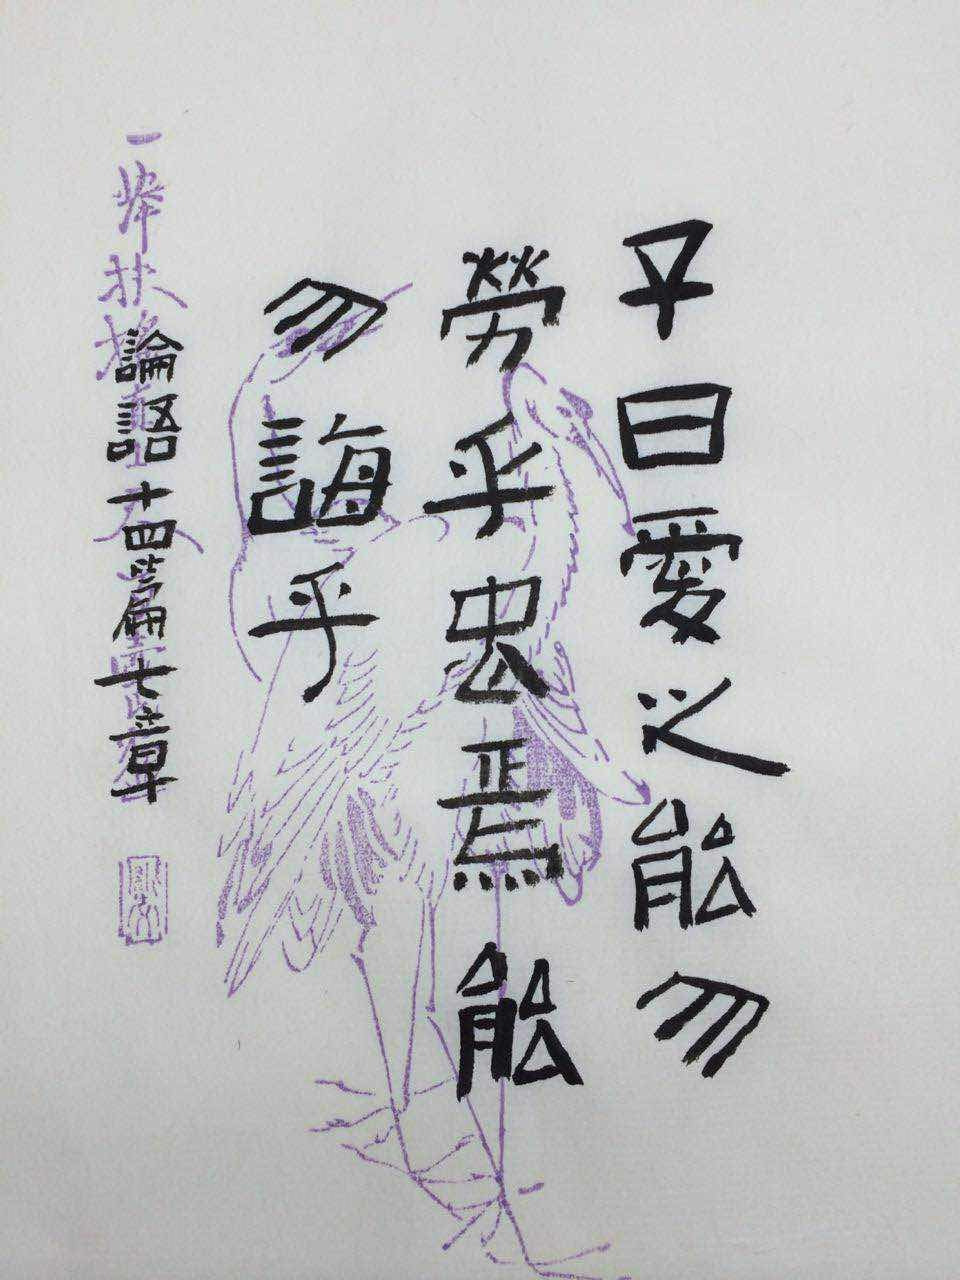 子曰愛之能勿
勞乎忠焉能
勿誨乎
論語十四篇七章